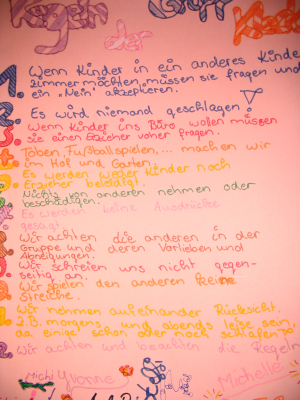 Regeln
1. Wenn Kinder in ein anderes Kinder
zimmer möchten, müssen sie fragen und
ein "Nein" akzeptieren.
2. Es wird niemand geschlagen!
3. Wenn Kinder ins Büro wollen müssen
sie einen Erzieher vorher fragen.
Toben, Fußball spielen, ... machen wir
im Hof und Garten.
Es werden weder Kinder noch
Erzieher beleidigt.
Nichts von anderen nehmen oder
beschädigen.
Es werden keine Ausdrücke
gesagt
Wir achten die anderen in der
Gruppe und deren Vorlieben und
Abneigungen.
Wir schreien uns nicht gegen-
seitig an.
Wir spielen den anderen keine
Streiche.
Wir nehmen aufeinander Rücksicht.
z.B. morgens und abends leise sein,
da einige schon oder noch schlafen
Wir achten und beachten die Regeln
Michi Yvonne
Michelle